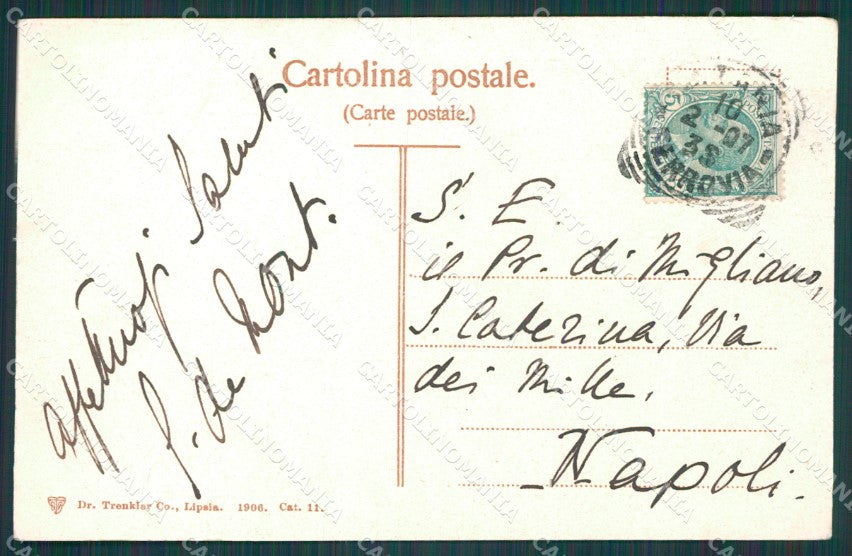 Cartolina postale.
(Carte postale.)
affettuosi saluti
G. de Mont.
5
16
2 -07
3S
FERROVIA
S. E.
il Pr. di Migliano,
S. Caterina, Via
dei Mille.
Napoli.
Dr. Trenkler Co., Lipsia. 1906. Cat. 11.
CARTOLINOMANIA